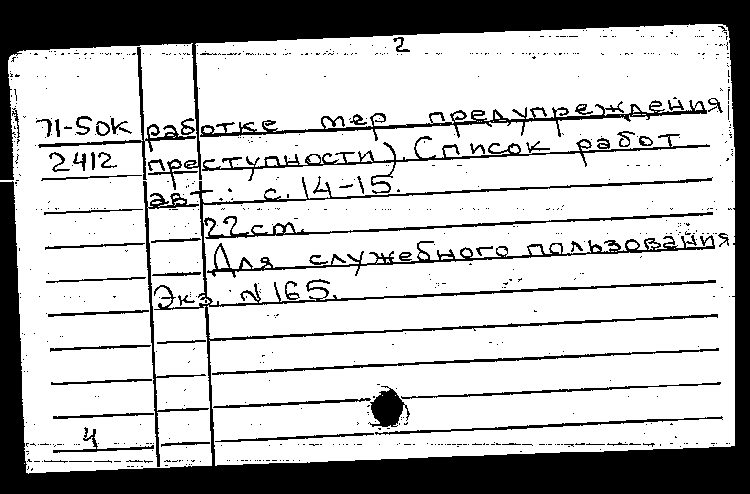 2
71-5ок работке мер предупреждения
2412 преступности). Список работ
авт.: с. 14-15.
22 см.
Для служебного пользования.
Экз. N 165.
4